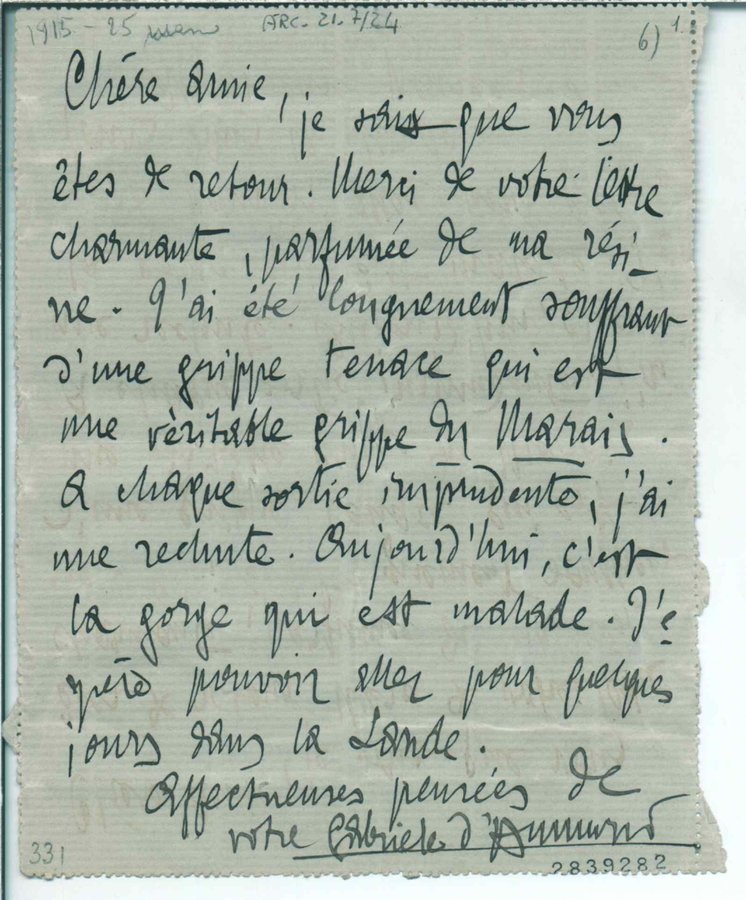 1915 - 25 ARC. 21. 7/24
6) 1.
Chère amie,
je sais que vous
êtes de retour. Merci de votre lettre
charmante, parfumée de ma rési-
ne. J'ai été longuement souffrant
d'une grippe tenace qui est
une véritable grippe du Marais.
A chaque sortie imprudente, j'ai
une rechute. Aujourd'hui, c'est
la gorge qui est malade. J'e
père pouvoir aller pour quelques
jours dans la Lande.
Affectueuses pensées de
votre Gabriele d'Annunzio
331 2839282